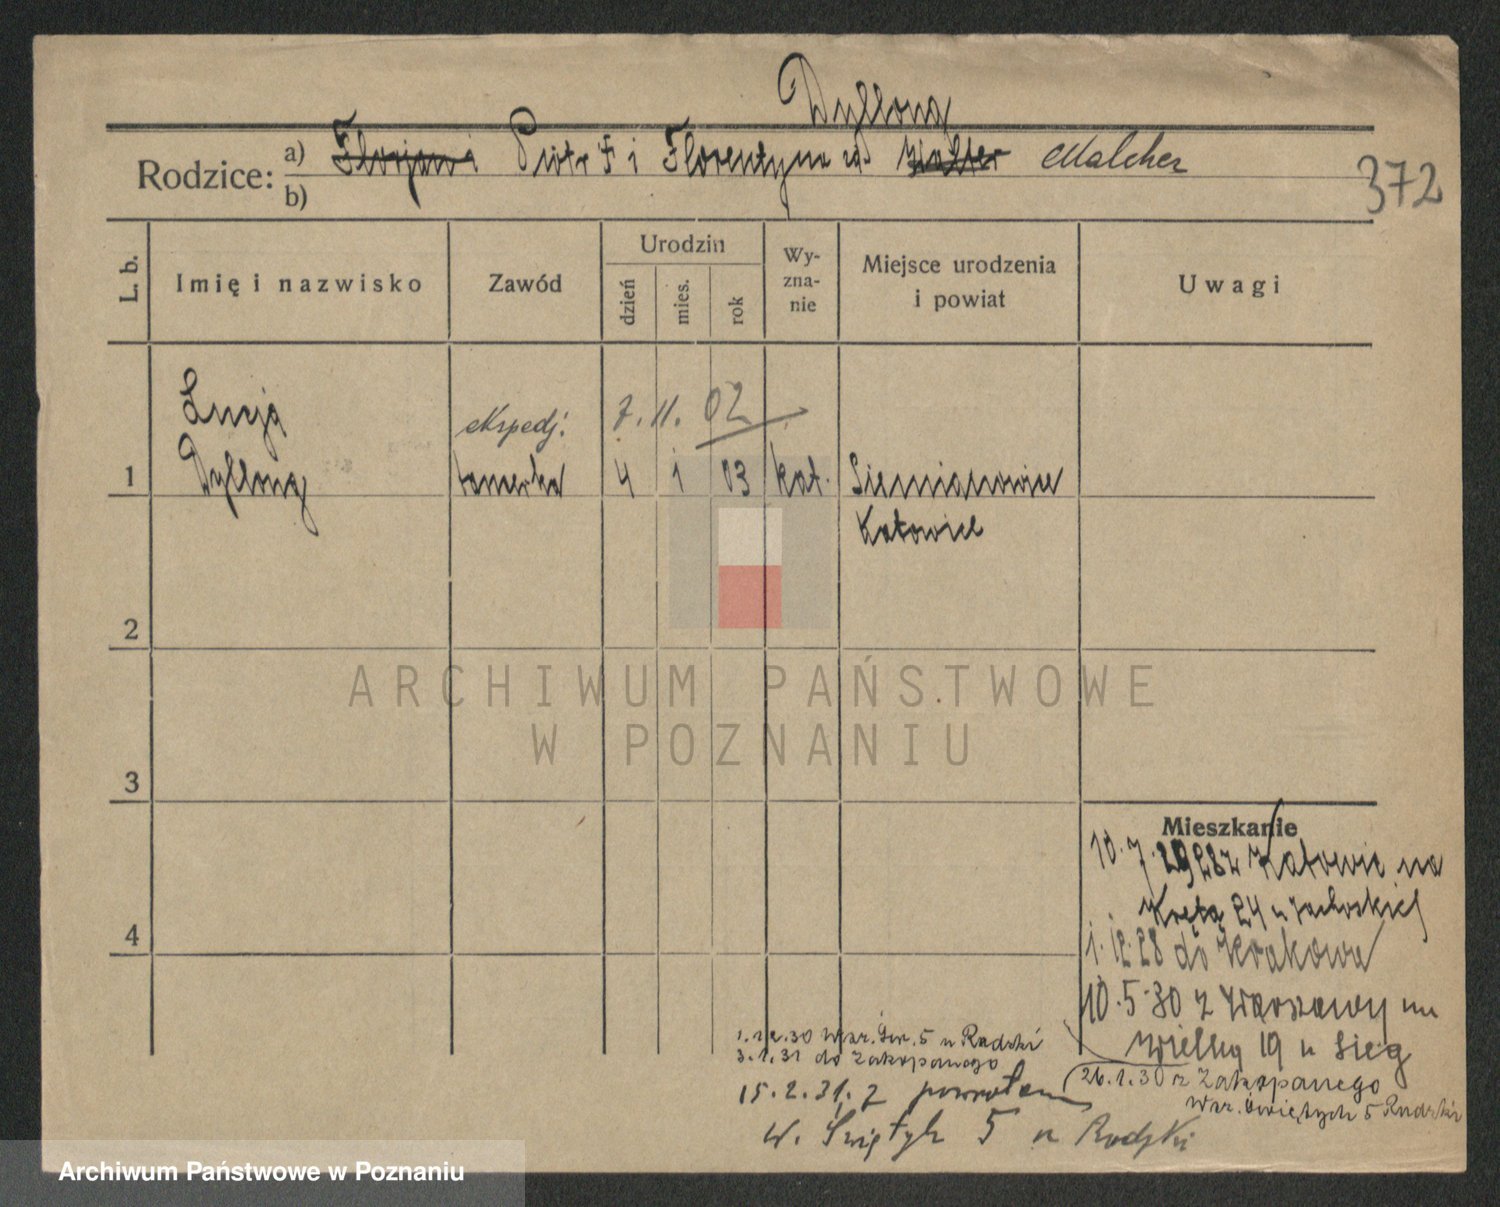 Dyllong
Rodzice: a) Florjan i Piotr i Florentyna ur. Walter Malcher
b)
372
L. b.
Imię i nazwisko
Zawód
Urodzin
dzień
mies.
rok
Wy-
zna-
nie
Miejsce urodzenia
i powiat
Uwagi
Łucja
ekspedj.
7. 11. 02
1
Dyllong
4 1 03 kat. Siemianowice
Katowice
2
ARCHIWUM PAŃSTWOWE
W POZNANIU
3
Mieszkanie
10. 7. 1928 z Katowic na
Krętą 24 u
4
1. 12. 28 do Krakowa
10. 5. 30 z Warszawy na
Wielką 19 u Sieg
1.12.30 Wsz. Św. 5 u Rudzki
3.1.31 do Zakopanego
26.1.30 z Zakopanego
Wsz. Świętych 5 Rudzki
15.2.31. z powrotem
W. Świętych 5 u Rudzki
Archiwum Państwowe w Poznaniu